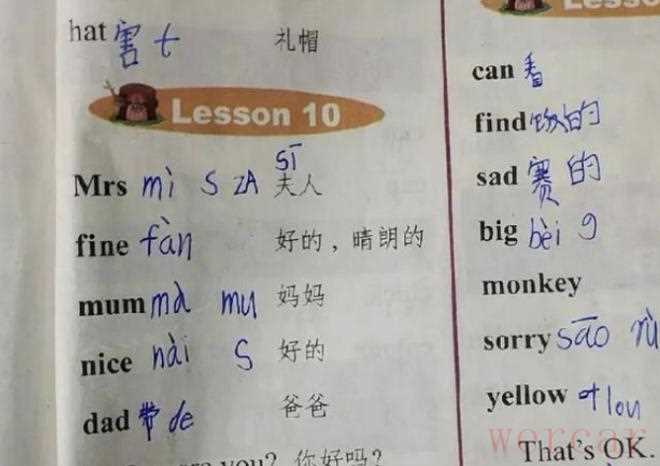 hat 害 t 礼帽
Lesson 10
sī
Mrs mì s ZA 夫人
fine fàn 好的，晴朗的
mum mà mu 妈妈
nice nài s 好的
dad 带 de 爸爸
you? 你好吗?
Lesso
can 看
find 饭的
sad 赛的
big bèi g
monkey
sorry sāo rù
yellow 叶 lou
worcar
That's OK.